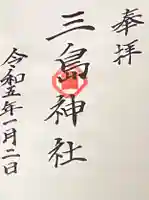 奉拝
三島神社
令和五年一月二日